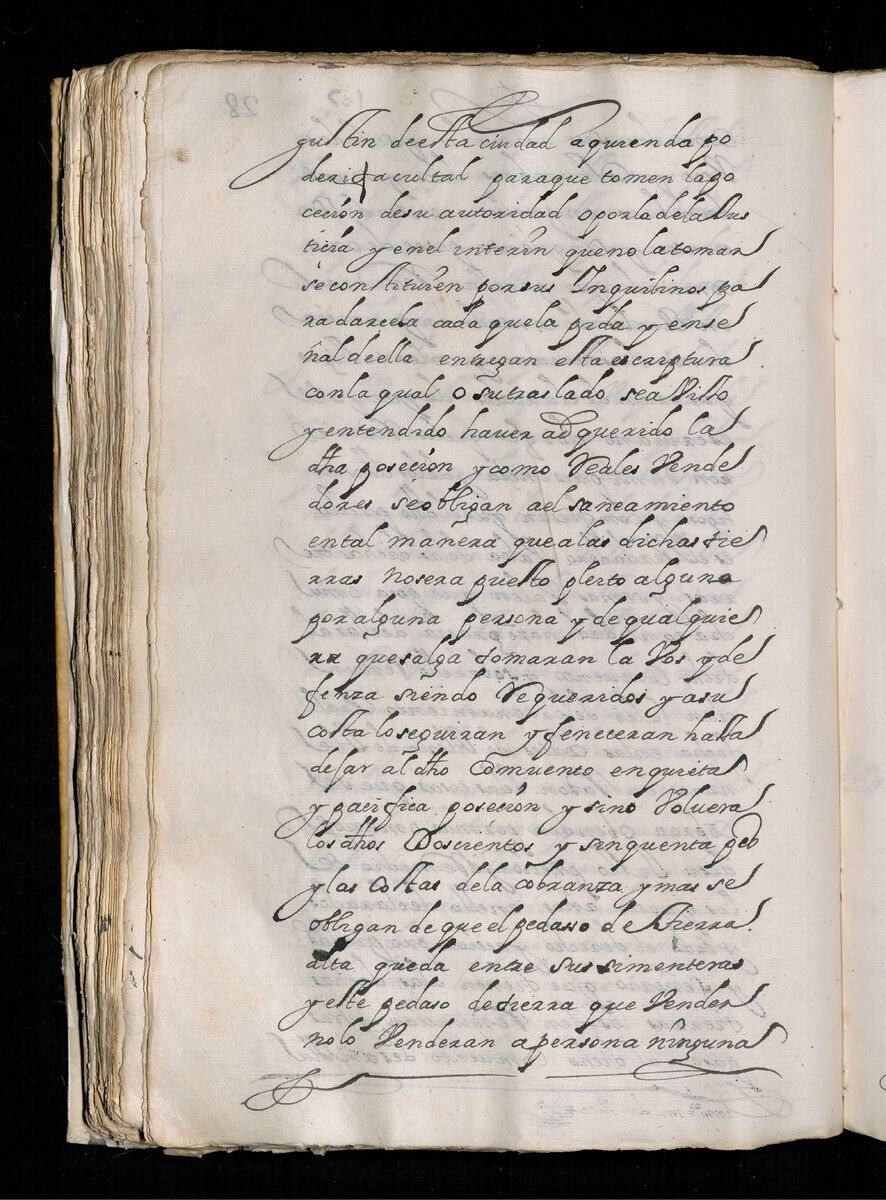 gustin de esta ciudad aquienda po
deri facultad paraque tomen lapo
ceción desu autoridad oporladelaJus
ticia y enel interin quenolatoman
se constituien porsus Inquilinos pa
radarcela cada quela pida y ense
ñal deella entregan esta escriptura
conla qual o sutraslado sea Visto
y entendido haver adquerido la
dha poseción y como Reales Vende
dores se obligan ael saneamiento
ental manera quealas dichas tie
rras nosera puesto pleito alguno
por alguna persona y de qualquie
ra que salga tomaran la Vos y de
fenza siendo Requeridos y asu
costa loseguiran y feneceran hasta
dejar al dho Comvento enquieta
y pacifica poseción y sino Volvera
los dhos Doscientos y sinquenta ps
y las costas dela cobranza y mas se
obligan de que el pedaso de tierra
alta queda entre sus simenteras
y este pedaso de tierra que Venden
nolo Venderan apersona ninguna